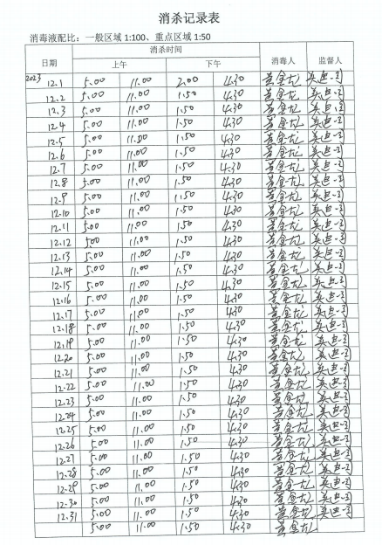 消杀记录表
消毒液配比：一般区域 1:100、重点区域 1:50
日期 消杀时间 消毒人 监督人
上午 下午
2023
12.1 5.00 11.00 2.00 4.30 黄金龙
12.2 5.00 11.00 1.50 4.30 黄金龙
12.3 5.00 11.00 1.50 4.30 黄金龙
12.4 5.00 11.00 1.50 4.30 黄金龙
12.5 5.00 11.00 1.50 4.30 黄金龙
12.6 5.00 11.00 1.50 4.30 黄金龙
12.7 5.00 11.00 1.50 4.30 黄金龙
12.8 5.00 11.00 1.50 4.30 黄金龙
12.9 5.00 11.00 1.50 4.30 黄金龙
12.10 5.00 11.00 1.50 4.30 黄金龙
12.11 5.00 11.00 1.50 4.30 黄金龙
12.12 500 11.00 1.50 4.30 黄金龙
12.13 5.00 11.00 1.50 4.30 黄金龙
12.14 5.00 11.00 1.50 4.30 黄金龙
12.15 5.00 11.00 1.50 4.30 黄金龙
12.16 5.00 11.00 1.50 4.30 黄金龙
12.17 5.00 11.00 1.50 4.30 黄金龙
12.18 5.00 11.00 1.50 4.30 黄金龙
12.19 5.00 11.00 1.50 4.30 黄金龙
12.20 5.00 11.00 1.50 4.30 黄金龙
12.21 5.00 11.00 1.50 4.30 黄金龙
12.22 5.00 11.00 1.50 4.30 黄金龙
12.23 5.00 11.00 1.50 4.30 黄金龙
12.24 5.00 11.00 1.50 4.30 黄金龙
12.25 5.00 11.00 1.50 4.30 黄金龙
12.26 5.00 11.00 1.50 4.30 黄金龙
12.27 5.00 11.00 1.50 4.30 黄金龙
12.28 5.00 11.00 1.50 4.30 黄金龙
12.29 5.00 11.00 1.50 4.30 黄金龙
12.30 5.00 11.00 1.50 4.30 黄金龙
12.31 5.00 11.00 1.50 4.30 黄金龙
5.00 11.00 1.50 4.30 黄金龙